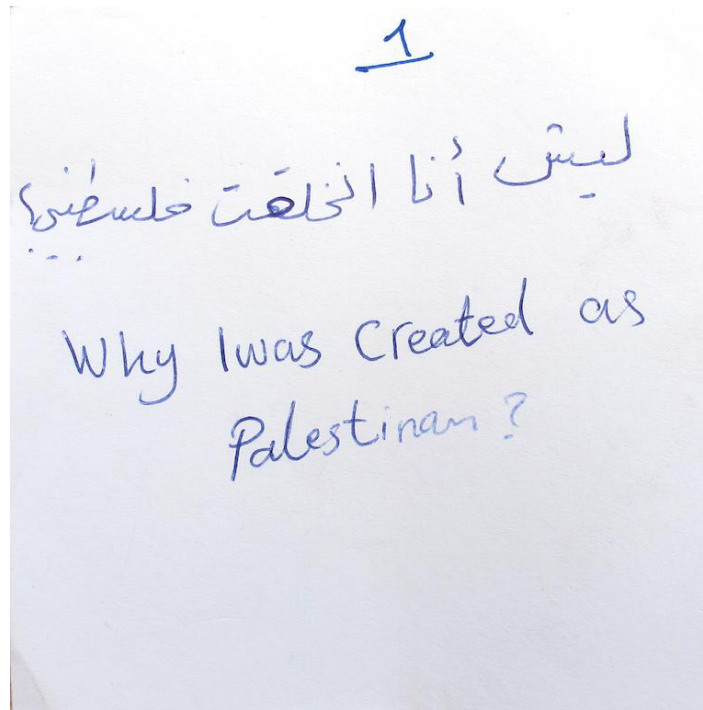 1
ليش أنا انخلقت فلسطيني؟
Why I was Created as
Palestinan?